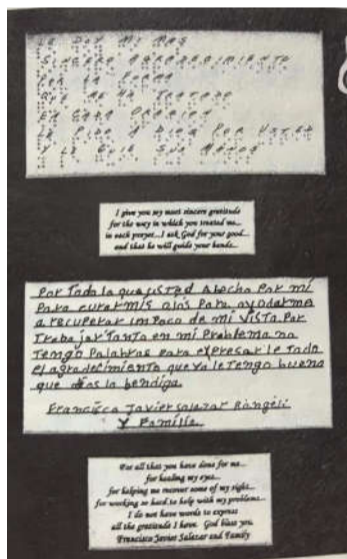 Le Doy Mi Mas
Sincero Agradecimiento
Por La Forma
Que Me Ha Tratado
En Cada Oracion
Le Pido A Dios Por Usted
Y Le Guie Sus Manos
I give you my most sincere gratitude
for the way in which you treated me...
in each prayer...I ask God for your good...
and that he will guide your hands...
Por Toda la que usted Ahecho Por mí
Para curar mis ojos Para ayodarme
a recuperar un Poco de mi vista Por
Trabajar Tanto en mi Problema no
Tengo Palabras Para expresarle Todo
el agradecimiento que ya le Tengo bueno
que dios la bendiga.
Francisco Javier Salazar
Y Familia
For all that you have done for me...
for healing my eyes...
for helping me recover some of my sight...
for working so hard to help with my problem...
I do not have words to express
all the gratitude I have. God bless you.
Francisco Javier Salazar and Family